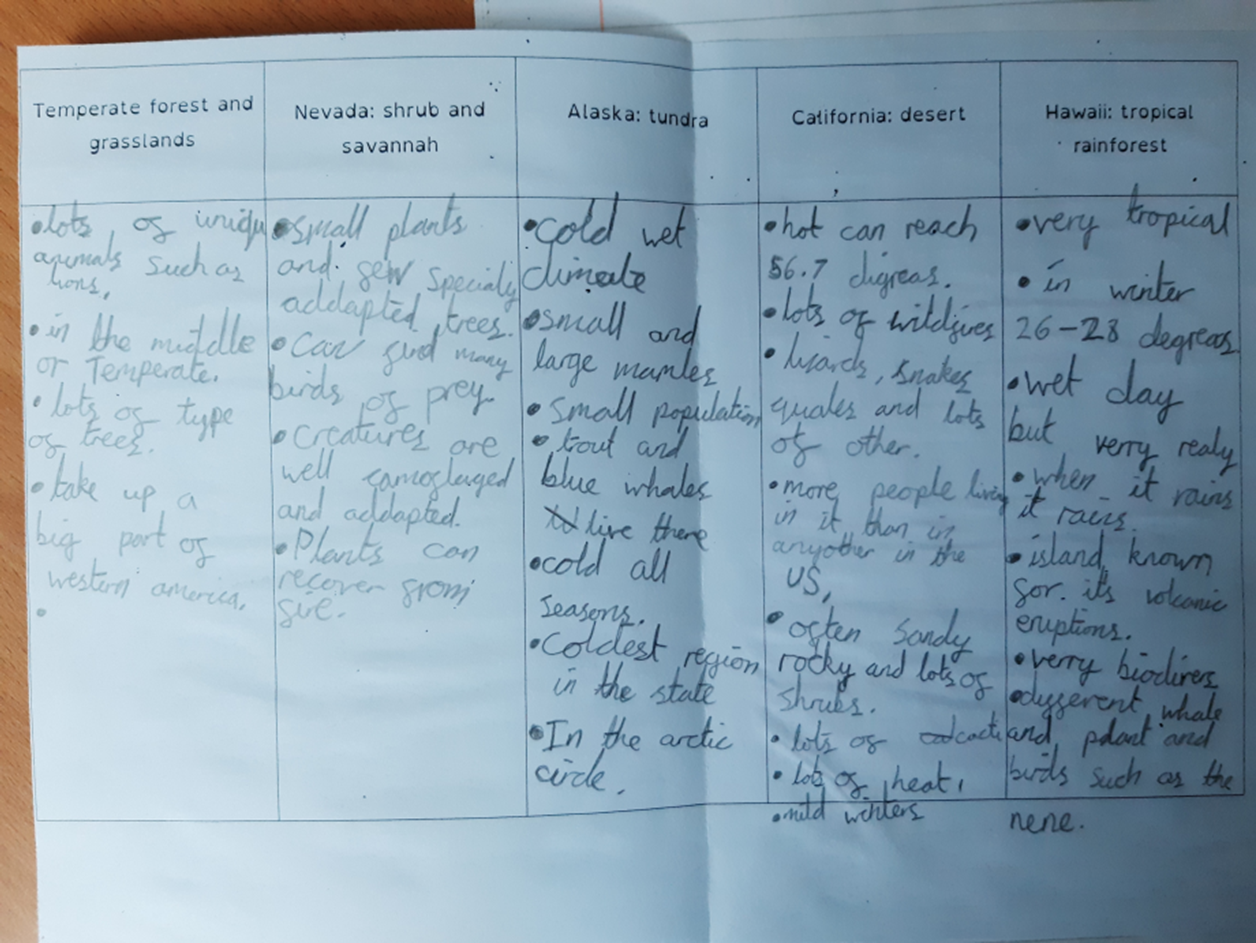 Temperate forest and
grasslands
•lots of uniqu
animals such as
lions,
•in the middle
or Temperate.
•lots of type
of trees.
•take up a
big part of
western america.
•
Nevada: shrub and
savannah
•small plants
and few specialy
addapted trees.
•Can find many
birds of prey.
•Creatures are
well camoflaged
and addapted.
•Plants can
recover from
fire.
Alaska: tundra
•cold wet
climate
•small and
large mamles
•small population
•trout and
blue whales
live there
•cold all
seasons.
•Coldest region
in the state
•In the arctic
circle.
California: desert
•hot can reach
56.7 digreas.
•lots of wildfires
•lizards, snakes
quales and lots
of other.
•more people living
in it than in
anyother in the
US,
•often sandy
rocky and lots of
shrubs.
•lots of cacti
•lots of heat,
•mild winters
Hawaii: tropical
rainforest
•very tropical
•in winter
26-28 degreas
•wet day
but verry realy
•when it rains
it rains.
•island known
for its volcanic
eruptions.
•verry biodivers
•dyfferent whale
and plant and
birds such as the
nene.